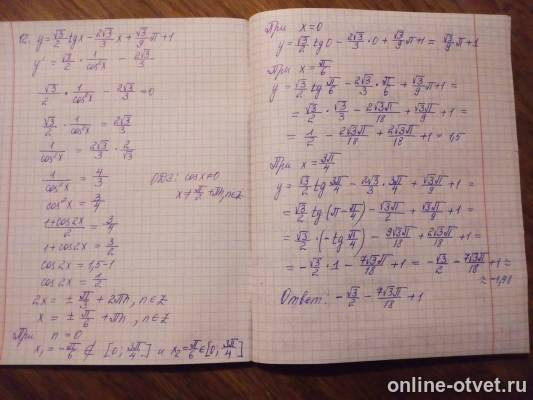 12. y = √3/2 tgx − 2√3/3 x + √3/9 π + 1
y' = √3/2 · 1/cos²x − 2√3/3
√3/2 · 1/cos²x − 2√3/3 = 0
√3/2 · 1/cos²x = 2√3/3
1/cos²x = 2√3/3 · 2/√3
1/cos²x = 4/3
ОДЗ: cosx≠0
x ≠ π/2 + πn, n∈Z
cos²x = 3/4
1+cos2x/2 = 3/4
1+cos2x = 3/2
cos2x = 1,5−1
cos2x = 1/2
2x = ± π/3 + 2πn, n∈Z
x = ± π/6 + πn, n∈Z
При n = 0
x₁ = −π/6 ∉ [0; 3π/4] и x₂ = π/6 ∈ [0; 3π/4]
При x=0
y = √3/2 tg0 − 2√3/3 · 0 + √3/9 π + 1 = √3/9 π + 1
При x = π/6
y = √3/2 tg π/6 − 2√3/3 · π/6 + √3/9 π + 1 =
= √3/2 · √3/3 − 2√3π/18 + √3π/9 + 1 =
= 1/2 − 2√3π/18 + 2√3π/18 + 1 = 1,5
При x = 3π/4
y = √3/2 tg 3π/4 − 2√3/3 · 3π/4 + √3π/9 + 1 =
= √3/2 tg (π − π/4) − √3π/2 + √3π/9 + 1 =
= √3/2 · (−tg π/4) − 9√3π/18 + 2√3π/18 + 1 =
= −√3/2 · 1 − 7√3π/18 + 1 = −√3/2 − 7√3π/18 + 1 ≈
≈ −1,98
Ответ: −√3/2 − 7√3π/18 + 1
online-otvet.ru